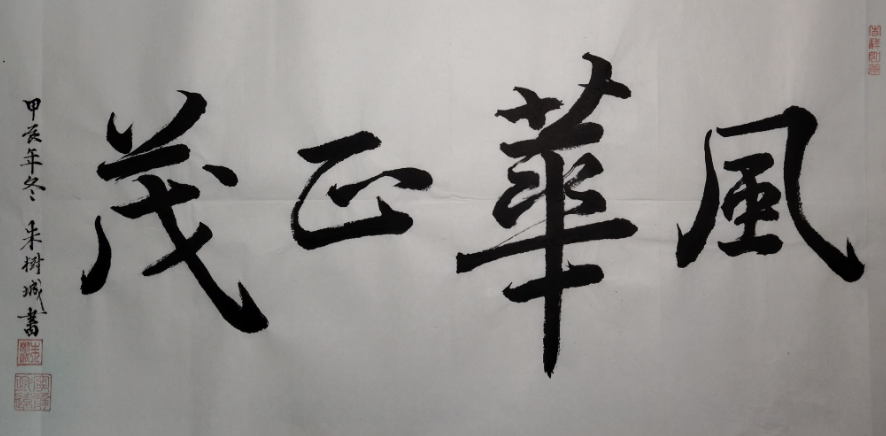 風華正茂
甲辰年冬 朱樹城書